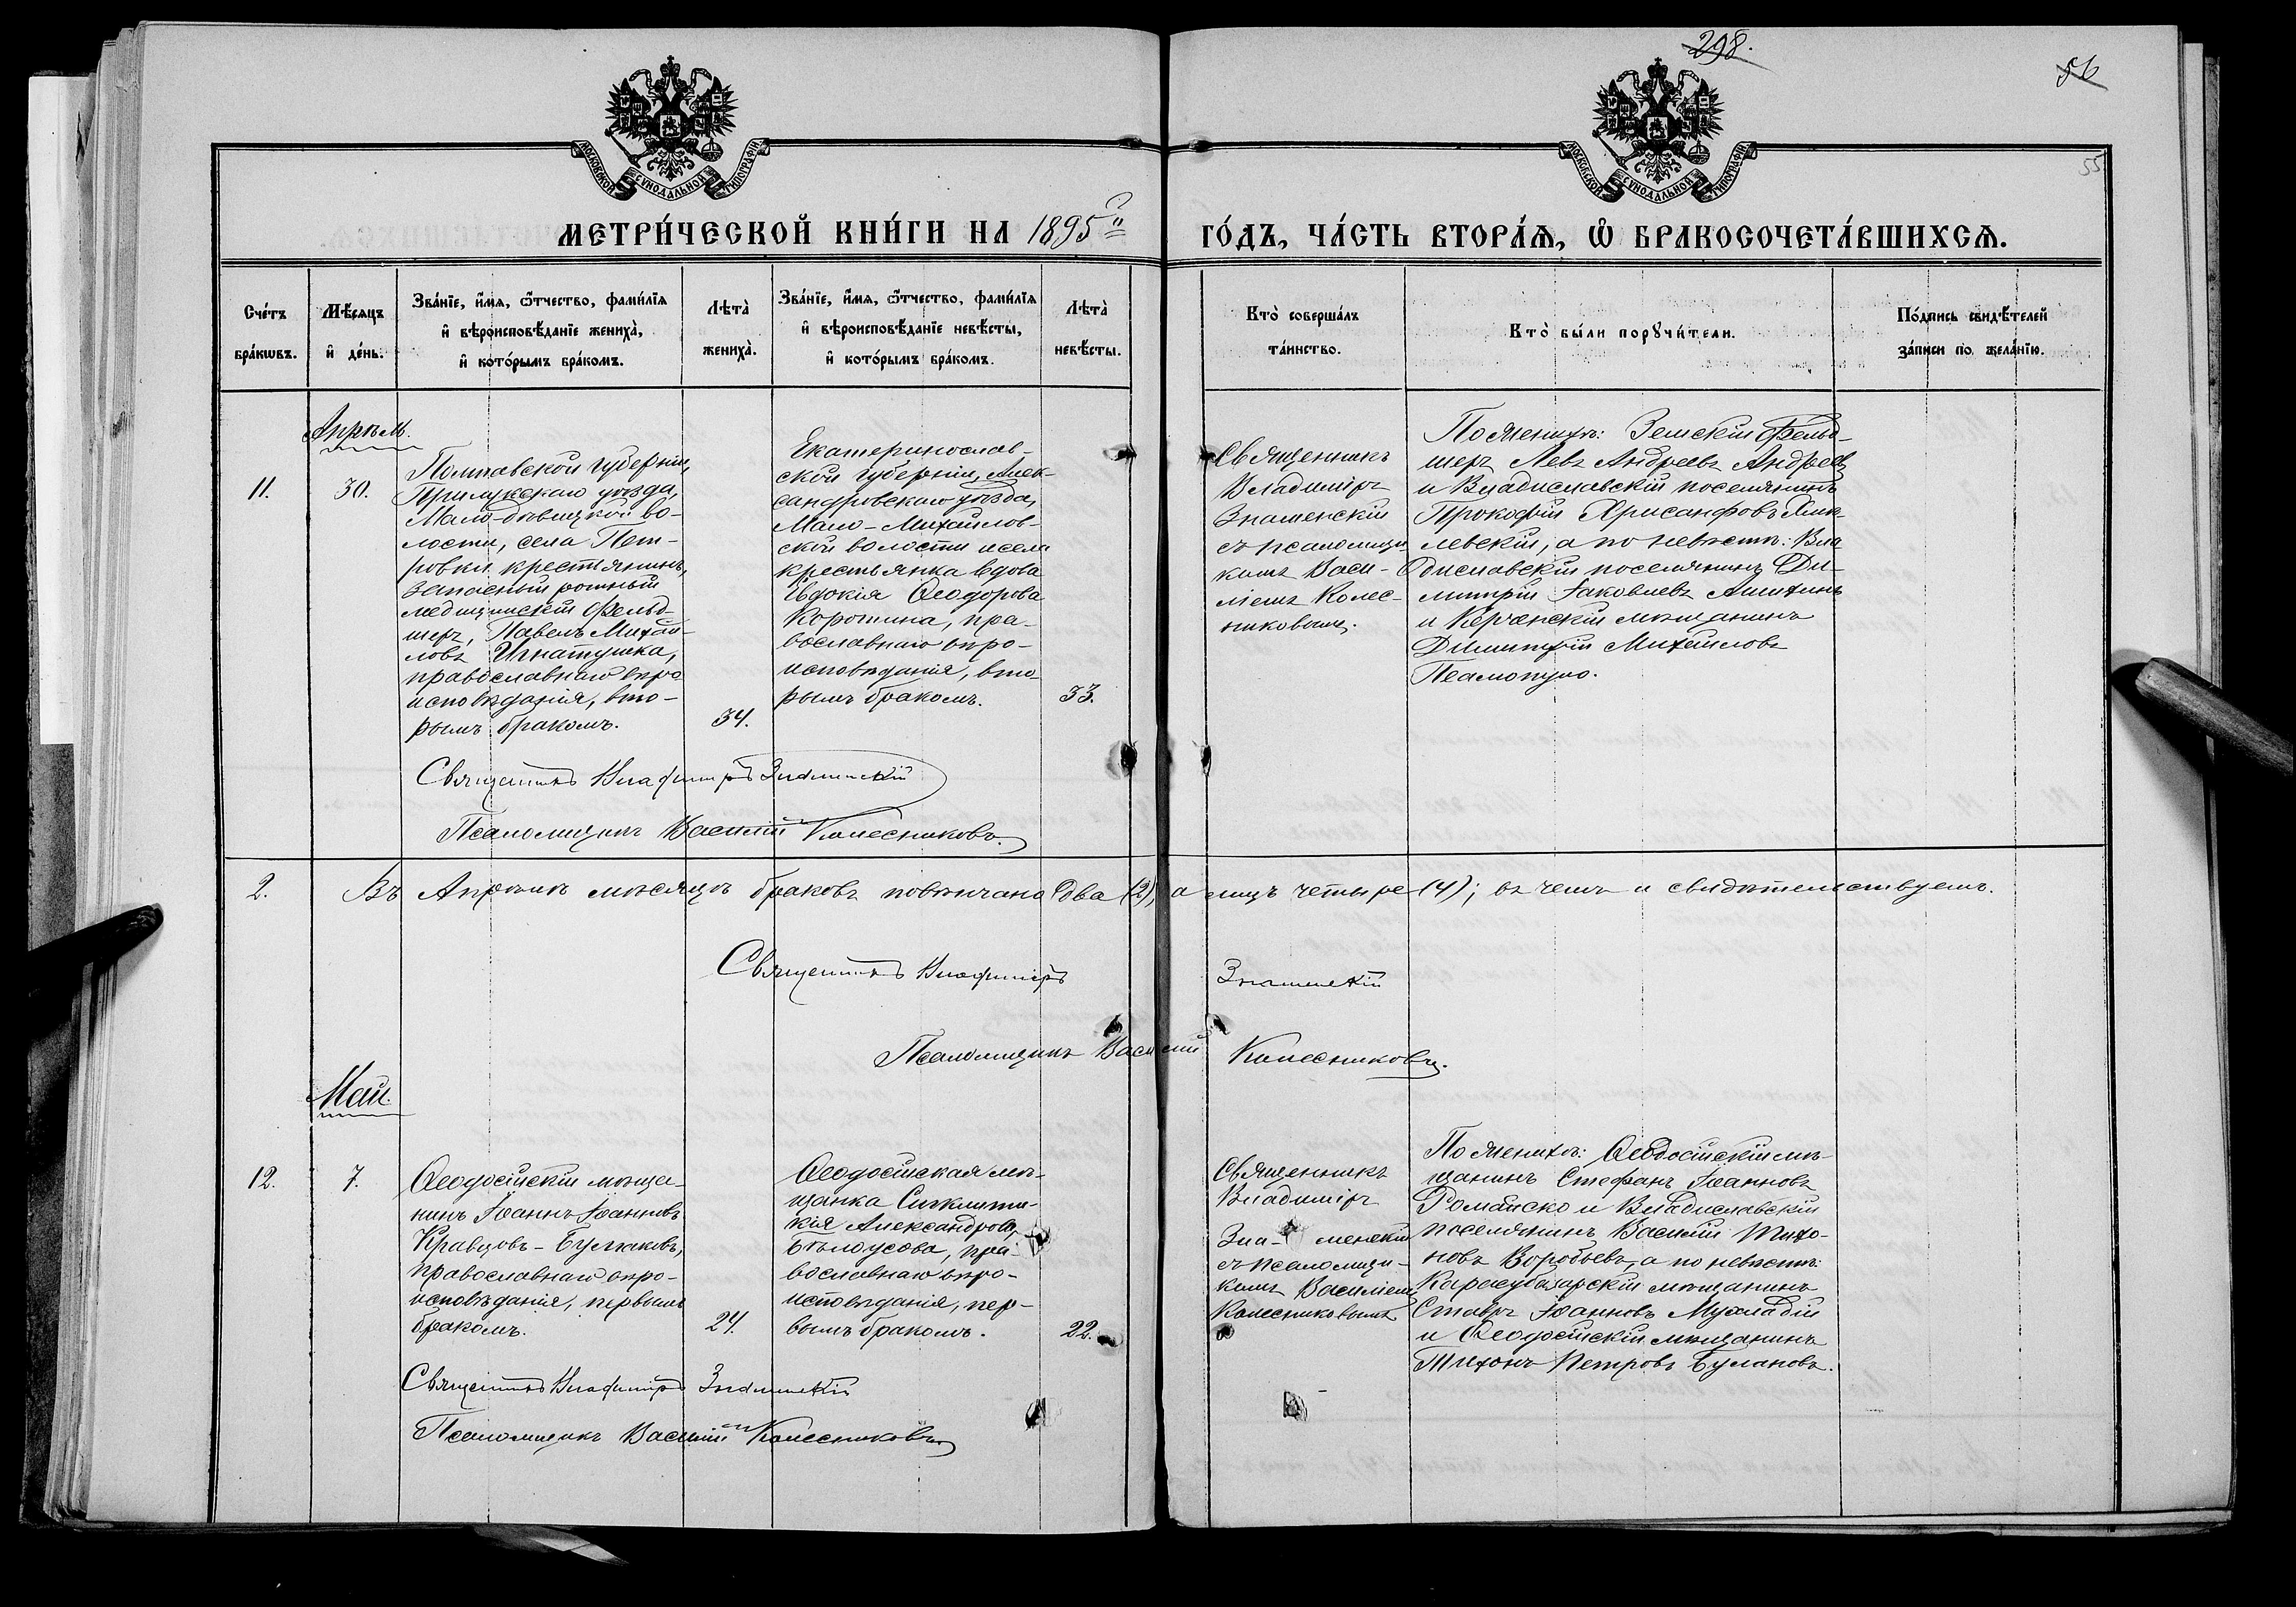 298.
56
55
МОСКОВСКОЙ СѴНОДАЛЬНОЙ ТИПОГРАФІИ
МОСКОВСКОЙ СѴНОДАЛЬНОЙ ТИПОГРАФІИ
МЕТРИ́ЧЕСКОЙ КНИ́ГИ НА 1895
ГО́ДЪ, ЧА́СТЬ ВТОРА́Ѧ, Ѽ БРАКОСОЧЕТА́ВШИХСѦ.
Сче́тъ
бра́кѡвъ.
Мѣ́сѧцъ
и҆ де́нь.
Зва́нїе, и҆́мѧ, ѻ҆́тчество, фами́лїѧ
и҆ вѣроисповѣ́данїе жениха̀,
и҆ кото́рымъ бра́комъ.
Лѣта̀
жениха̀.
Зва́нїе, и҆́мѧ, ѻ҆́тчество, фами́лїѧ
и҆ вѣроисповѣ́данїе невѣ́сты,
и҆ кото́рымъ бра́комъ.
Лѣта̀
невѣ́сты.
Кто̀ соверша́лъ
та́инство.
Кто̀ бы́ли порꙋчи́тели.
По́дпись свидѣ́телей
за́писи по жела́нїю.
Апрѣль.
11.
30.
Полтавской губерніи,
Прилукскаго уѣзда,
Мало-дѣвицкой во-
лости, села Пет-
ровки крестьянинъ,
запасный ротный
медицинскій фельд-
шеръ, Павелъ Михай-
ловъ Игнатушка,
православнаго вѣро
исповѣданія, вто-
рымъ бракомъ.
34.
Екатеринослав-
ской губерніи, Алек-
сандровскаго уѣзда,
Мало-Михайлов-
ской волости и села
крестьянка вдова
Евдокія Ѳеодорова
Коротина, пра-
вославнаго вѣро-
исповѣданія, вто-
рымъ бракомъ.
33.
Священникъ
Владиміръ
Знаменскій
съ псаломщи-
комъ Васи-
ліемъ Колес-
никовымъ.
По женихѣ: Земскій фельд-
шеръ Левъ Андреевъ Андреевъ
и Владиславскій поселянинъ
Прокофій Хрисанфовъ
левскій, а по невѣстѣ: Вла
диславскій поселянинъ Ди-
митрій Іаковлевъ
и Керченскій мѣщанинъ
Димитрій Михайловъ
Псалопуло.
Священникъ Владиміръ Знаменскій
Псаломщикъ Василій Колесниковъ.
2.
Въ Апрѣлѣ мѣсяцѣ браковъ повѣнчано два (2), а лицъ четыре (4); въ чемъ и свидѣтельствуемъ.
Священникъ Владиміръ Знаменскій
Псаломщикъ Василій Колесниковъ.
Май.
12.
7.
Ѳеодосійскій мѣща-
нинъ Іоаннъ Іоанновъ
Кравцовъ-Булгаковъ,
православнаго вѣро-
исповѣданія, первымъ
бракомъ.
24.
Ѳеодосійская мѣ-
щанка Синклити-
кія Александрова
Бѣлоусова, пра-
вославнаго вѣро-
исповѣданія, пер-
вымъ бракомъ.
22.
Священникъ
Владиміръ
Зна- менскій
съ псаломщи-
комъ Василіемъ
Колесниковымъ
По женихѣ: Ѳеодосійскій мѣ-
щанинъ Стефанъ Іоанновъ
Романско и Владиславскій
поселянинъ Василій Тихо-
новъ Воробьевъ, а по невѣстѣ:
Карасубазарскій мѣщанинъ
Ставръ Іоанновъ Мухладій
и Ѳеодосійскій мѣщанинъ
Тихонъ Петровъ Булановъ.
Священникъ Владиміръ Знаменскій
Псаломщикъ Василій Колесниковъ